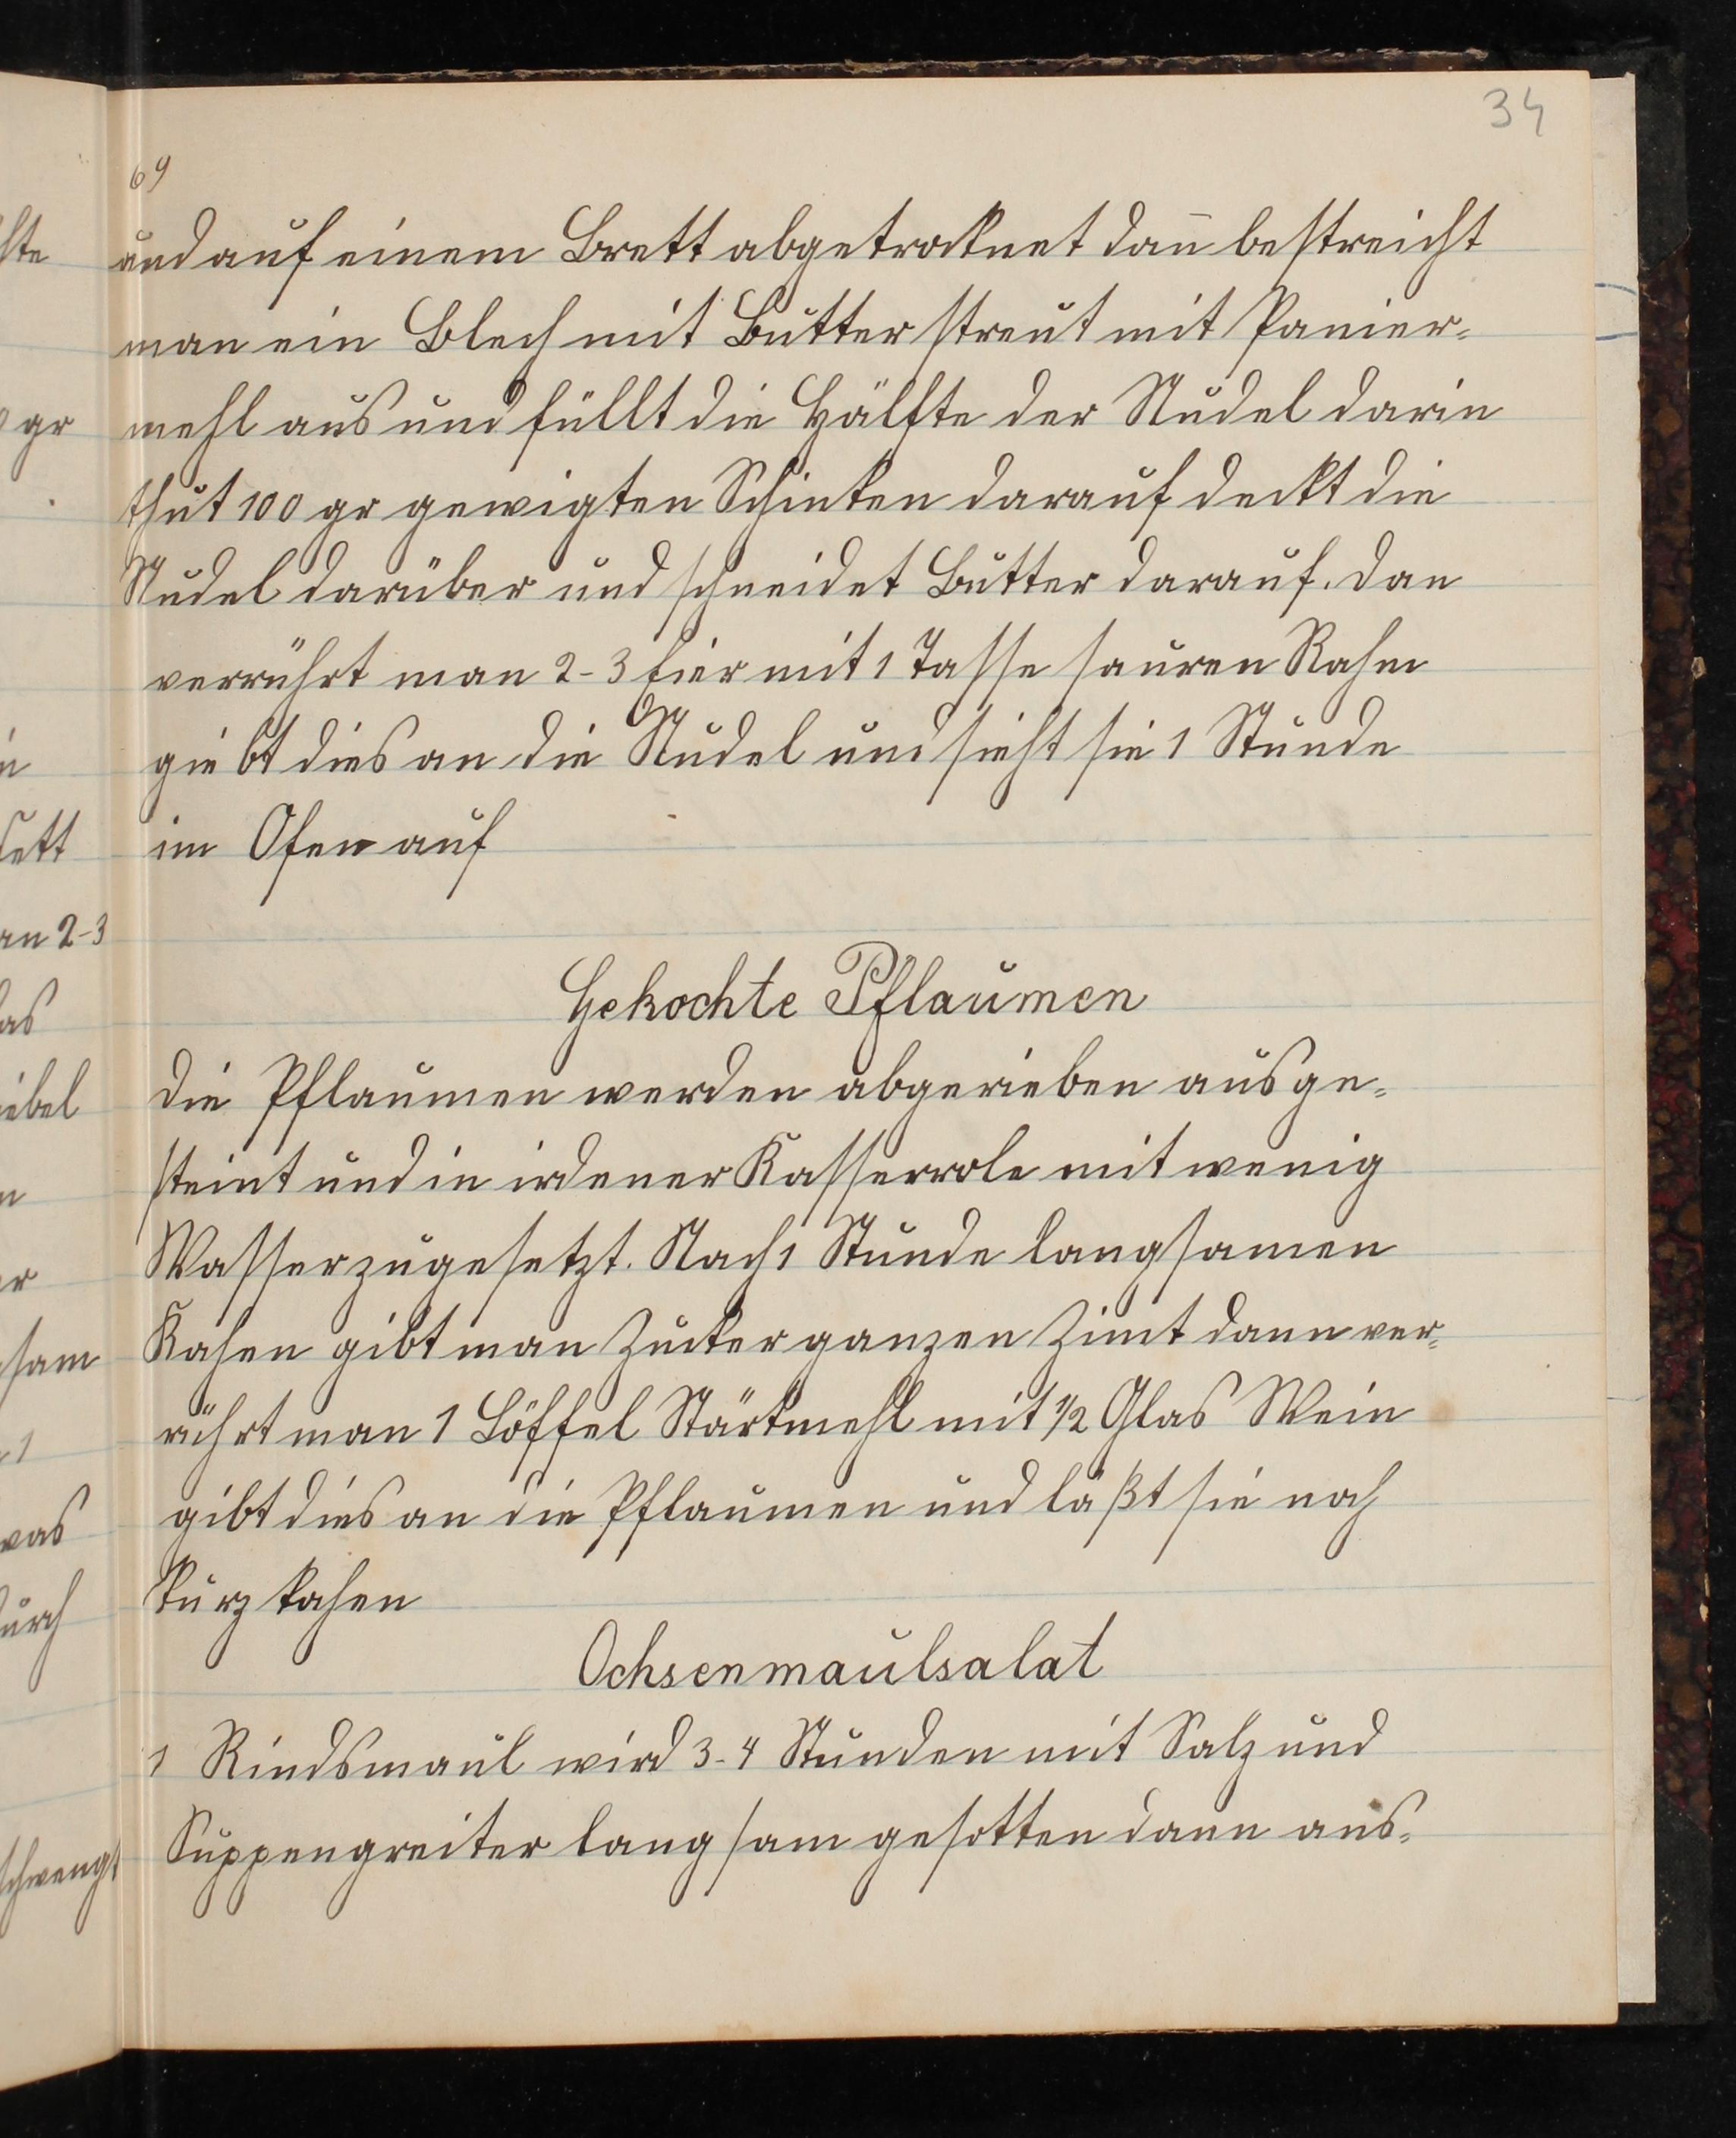 34
69
und auf einem Brett abgetrocknet dan̄ bestreicht
man ein Blech mit Butter streut mit Panier-
mehl aus und füllt die Hälfte der Nudel darin
thut 100 gr gewigten Schinken darauf deckt die
Nudel darüber und schneidet Butter darauf. dan
verrührt man 2-3 Eier mit 1 Tasse sauren Rahm
giebt dies an die Nudel und zieht sie 1 Stunde
im Ofen auf
Gekochte Pflaumen
die Pflaumen werden abgerieben ausge-
steint und in irdener Kasserrole mit wenig
Wasser zugesetzt. Nach 1 Stunde langsamen
Kochen gibt man Zucker ganzen Zimt dann ver-
rührt man 1 Löffel Stärkmehl mit 1/2 Glas Wein
gibt dies an die Pflaumen und läßt sie noch
kurz kochen
Ochsenmaulsalat
1 Rindsmaul wird 3-4 Stunden mit Salz und
Suppengreiter langsam gesotten dann aus-